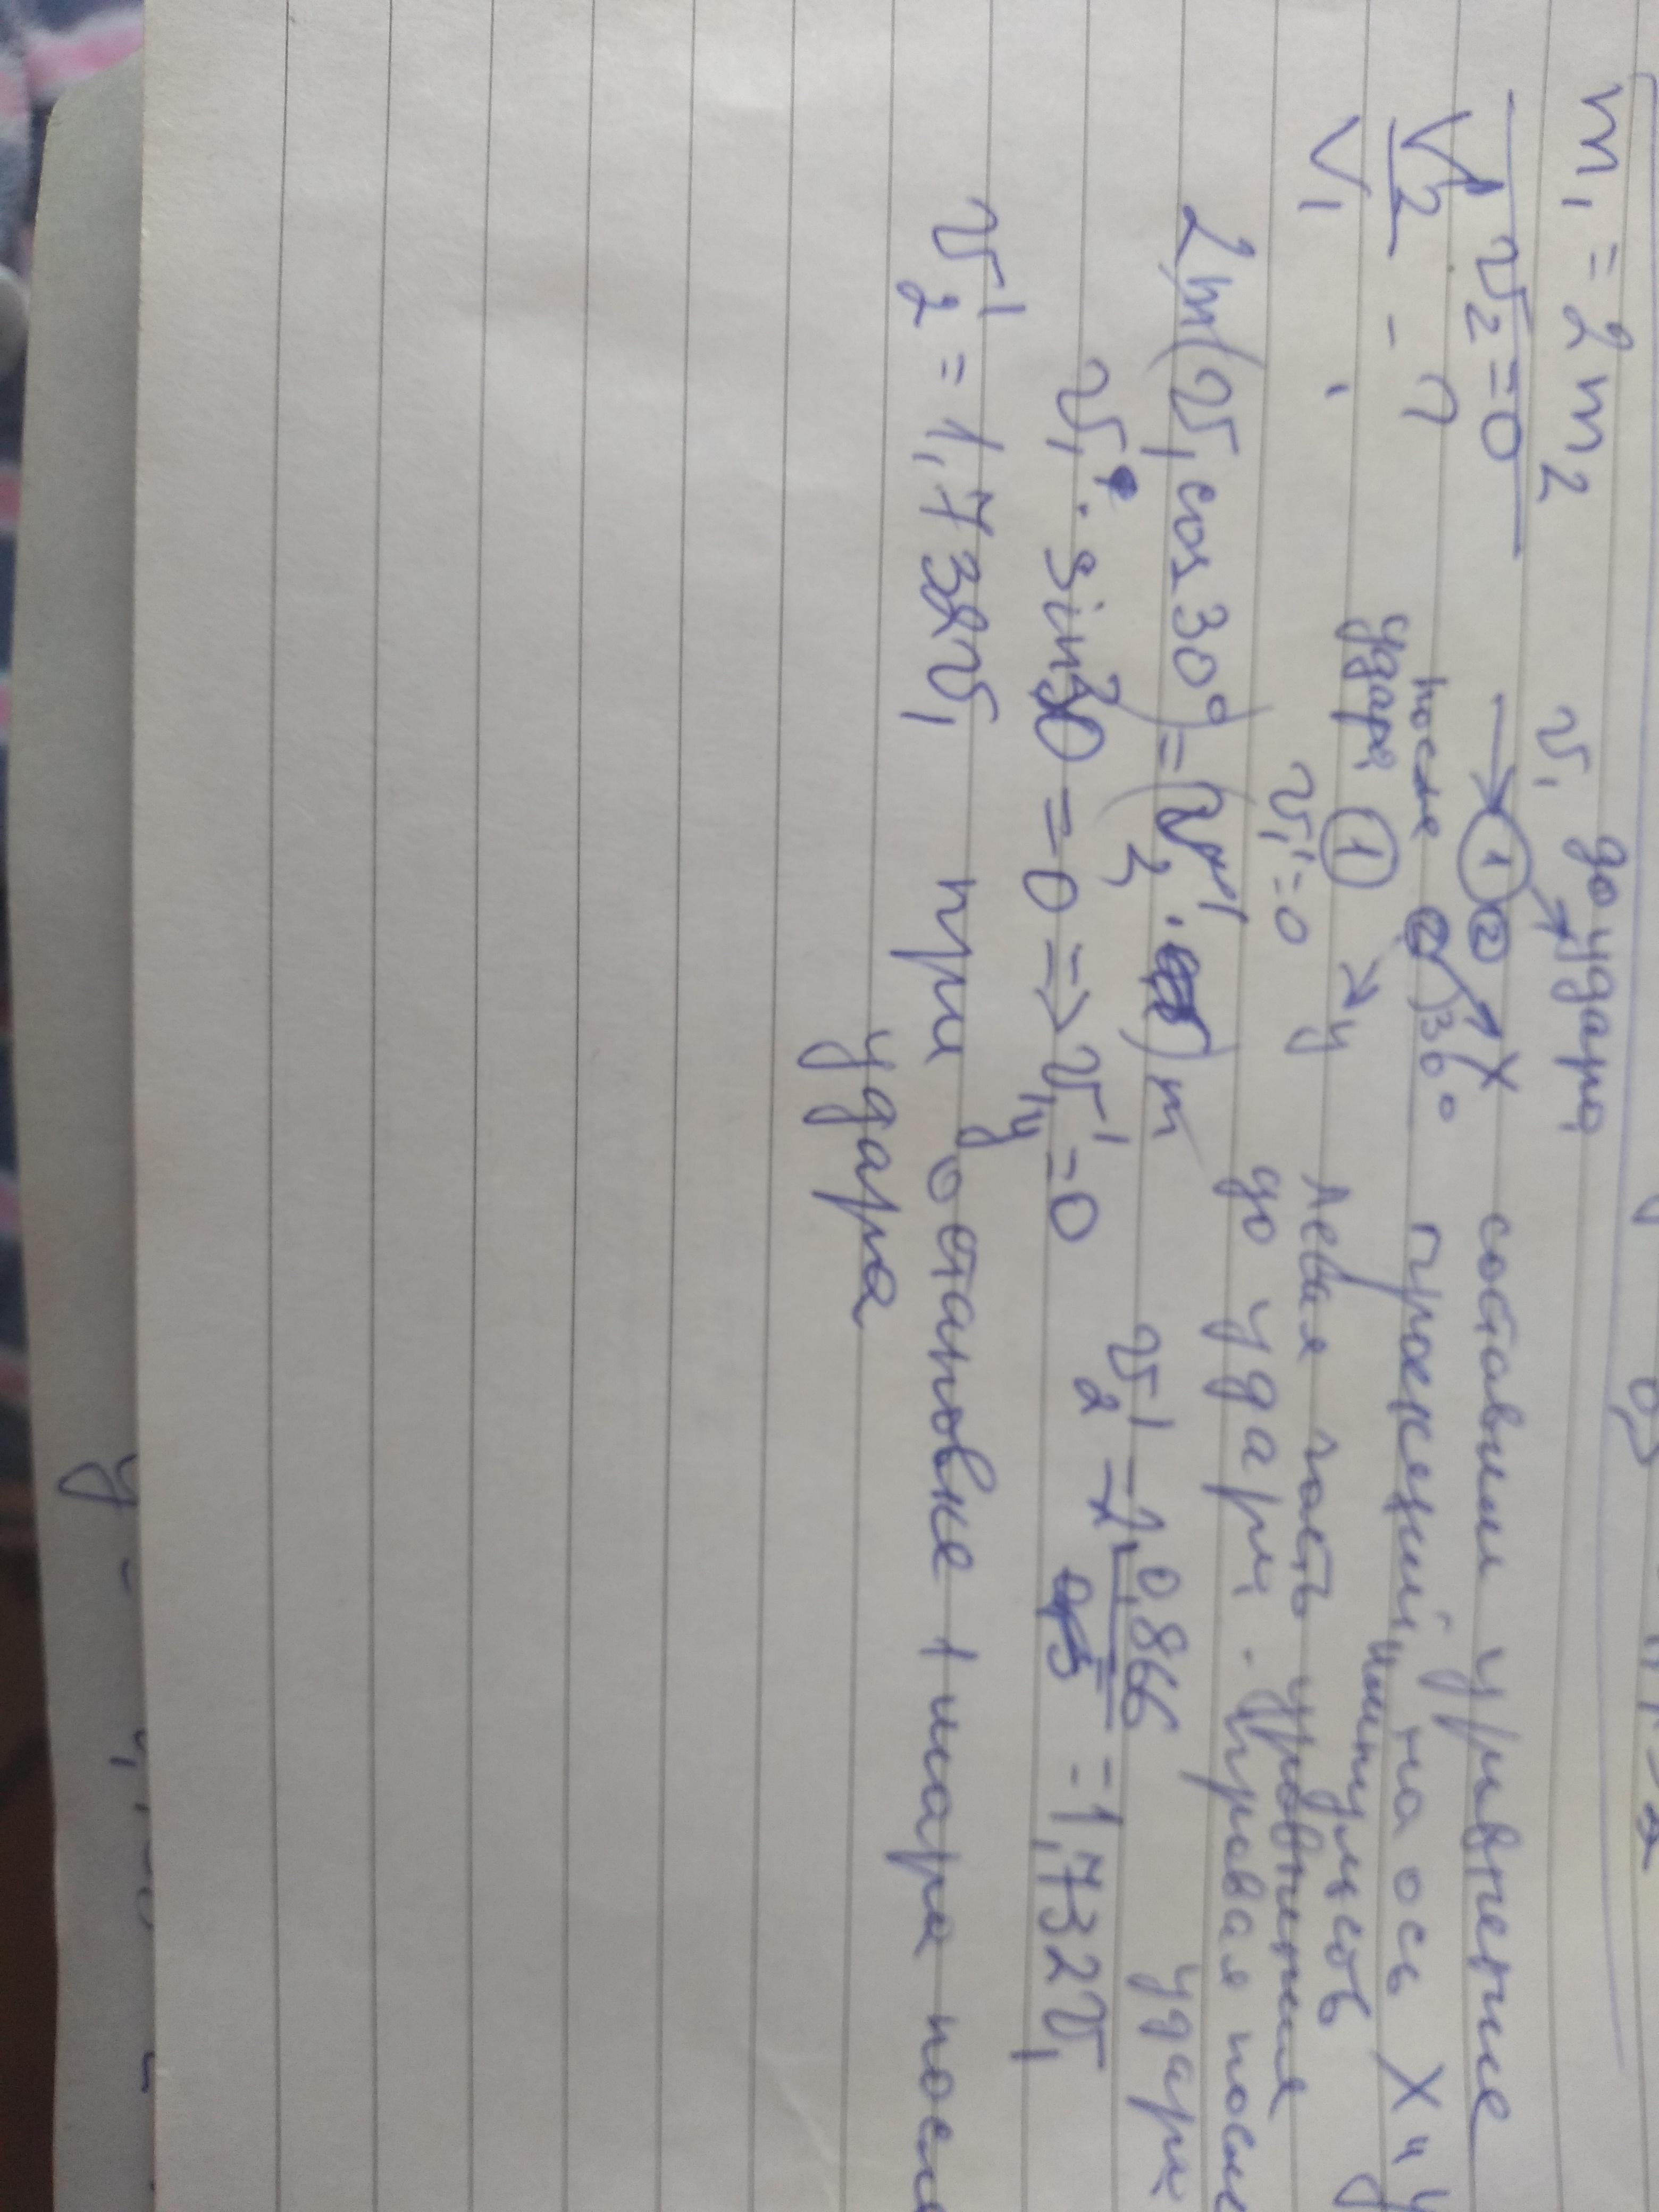 m₁ = 2m₂
v₂ = 0
V₂ - ?
V₁
v₁ до удара
1 2
после удара 1 2 30° X
v₁' = 0
y
составим уравнение
проекций на ось X и y
импульсов
левая часть уравнения
до удара. правая после
удара
2m(v₁cos30°) = (v₂' · ) m
v₁ · sin30 = 0 => v₁y' = 0
v₂' = 2·0,866 = 1,732v₁
v₂' = 1,732v₁ при остановке 1 шара после
удара